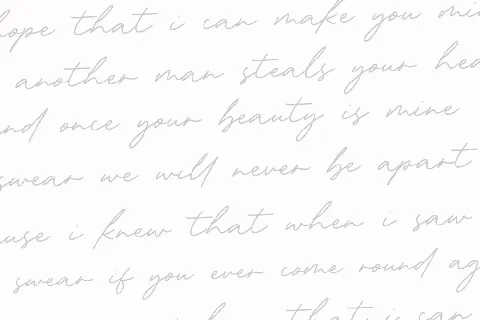 hope that i can make you
another man steals your
once your beauty is mine
swear we will never be apart
i knew that when i saw
swear if you ever come round
that i can